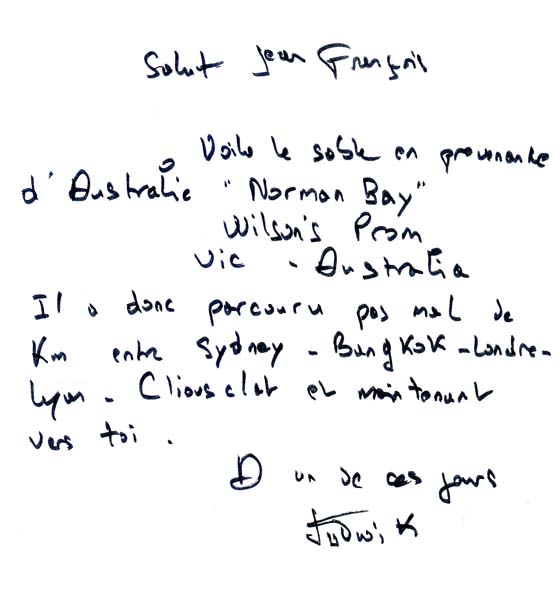 Salut Jean François
Voila le sable en provenance
d'Australie "Norman Bay"
Wilson's Prom
Vic - Australia
Il a donc parcouru pas mal de
Km entre Sydney - Bangkok - Londre -
Lyon - Cliousclat et maintenant
vers toi .
A un de ces jours